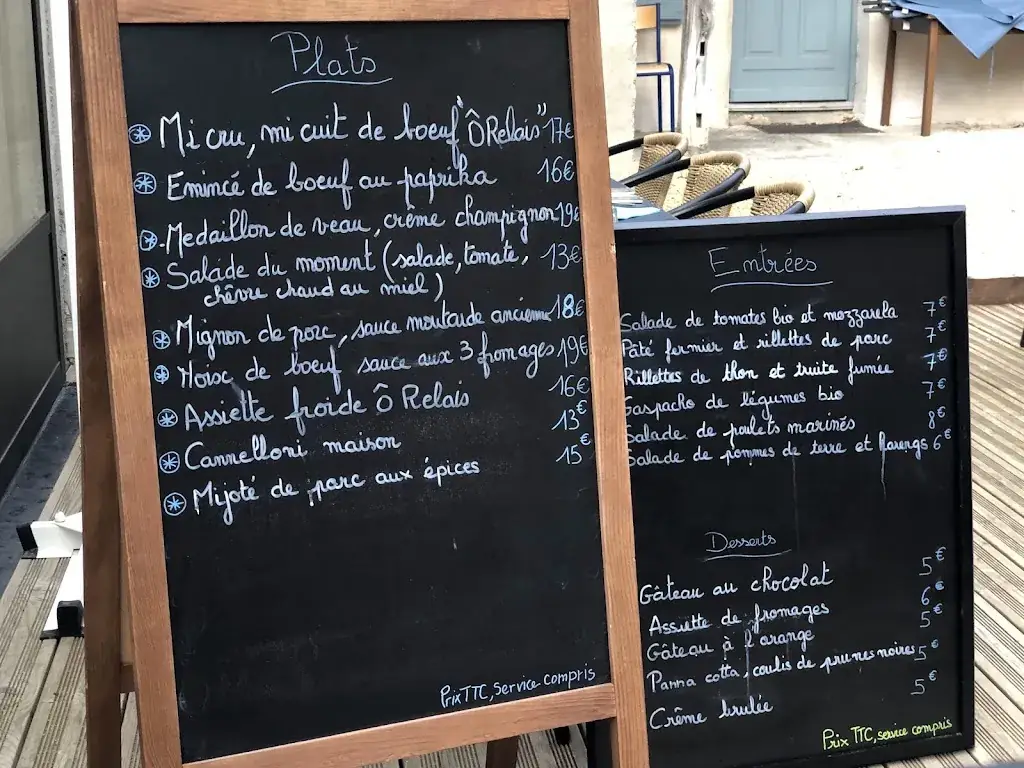 Plats
Mi cru, mi cuit de boeuf "Ô Relais" 17€
Emincé de boeuf au paprika 16€
Medaillon de veau, crème champignon 19€
Salade du moment (salade, tomate, 13€
chêvre chaud au miel)
Mignon de porc, sauce moutarde ancienne 18€
Noisc de boeuf sauce aux 3 fromages 19€
Assiette froide Ô Relais 16€
Cannelloni maison 13€
Mijoté de porc aux épices 15€
Prix TTC, Service compris
Entrées
Salade de tomates bio et mozzarela 7€
Pâté fermier et rillettes de porc 7€
Rillettes de thon et truite fumée 7€
Gaspacho de légumes bio 7€
Salade de poulets marinés 8€
Salade de pommes de terre et harengs 6€
Desserts
Gâteau au chocolat 5€
Assiette de fromages 6€
Gâteau à l'orange 5€
Panna cotta, coulis de prunes noires 5€
Crême brulée 5€
Prix TTC, service compris